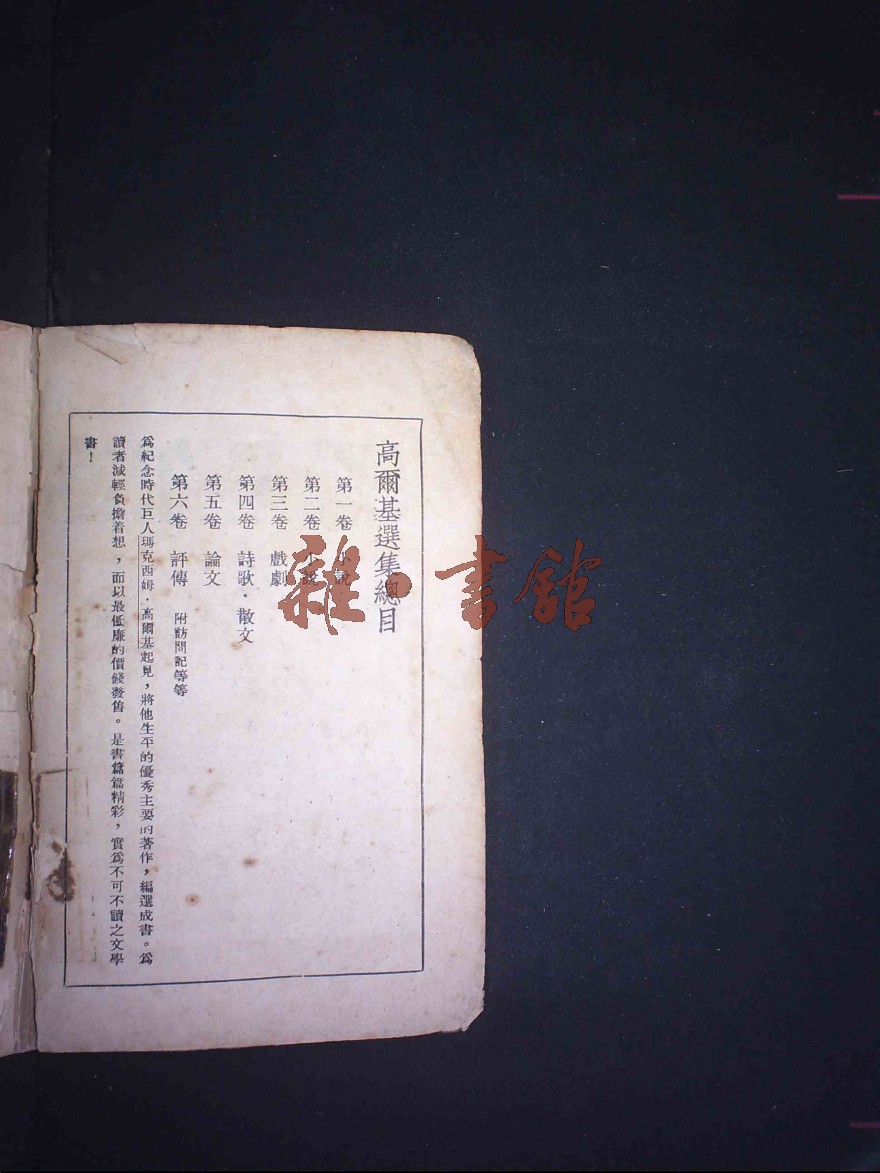 高爾基選集總目
第一卷 小說
第二卷 小說
第三卷 戲劇
第四卷 詩歌·散文
第五卷 論文
第六卷 評傳 附訪問記等等
爲紀念時代巨人瑪克西姆·高爾基起見，將他生平的優秀主要的著作，編選成書。爲
讀者減輕負擔着想，而以最低廉的價錢發售。是書篇篇精彩，實爲不可不讀之文學
書！
雜·書館